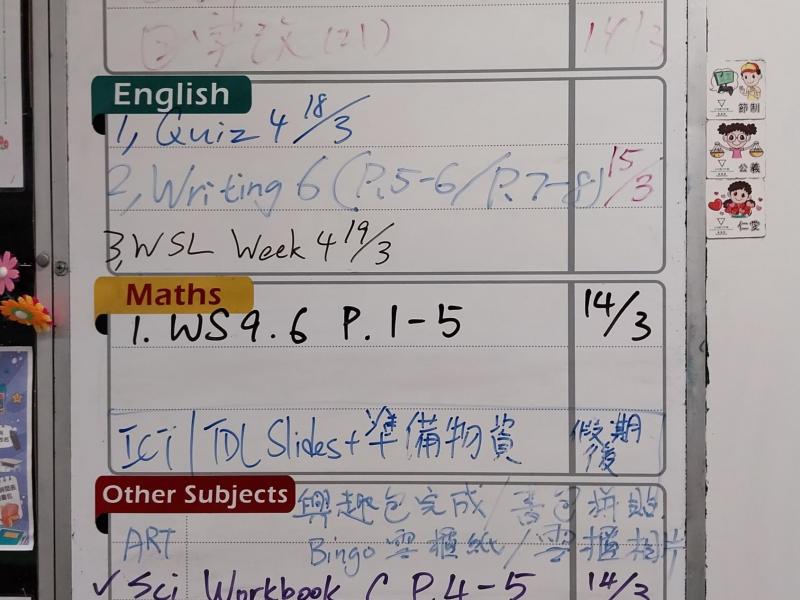 14/3
English
1, Quiz 4 18/3
2, Writing 6 (P.5-6/P.7-8) 15/3
3, WSL Week 4 19/3
Maths
1. WS 9.6 P. 1-5 14/3
ICT / TDL Slides + 準備物資 假期後
Other Subjects
興趣包完成 / 書包拼貼
ART Bingo 雲櫃紙 / 雲櫃相片
✓ Sci Workbook C P.4-5 14/3
節制
公義
仁愛